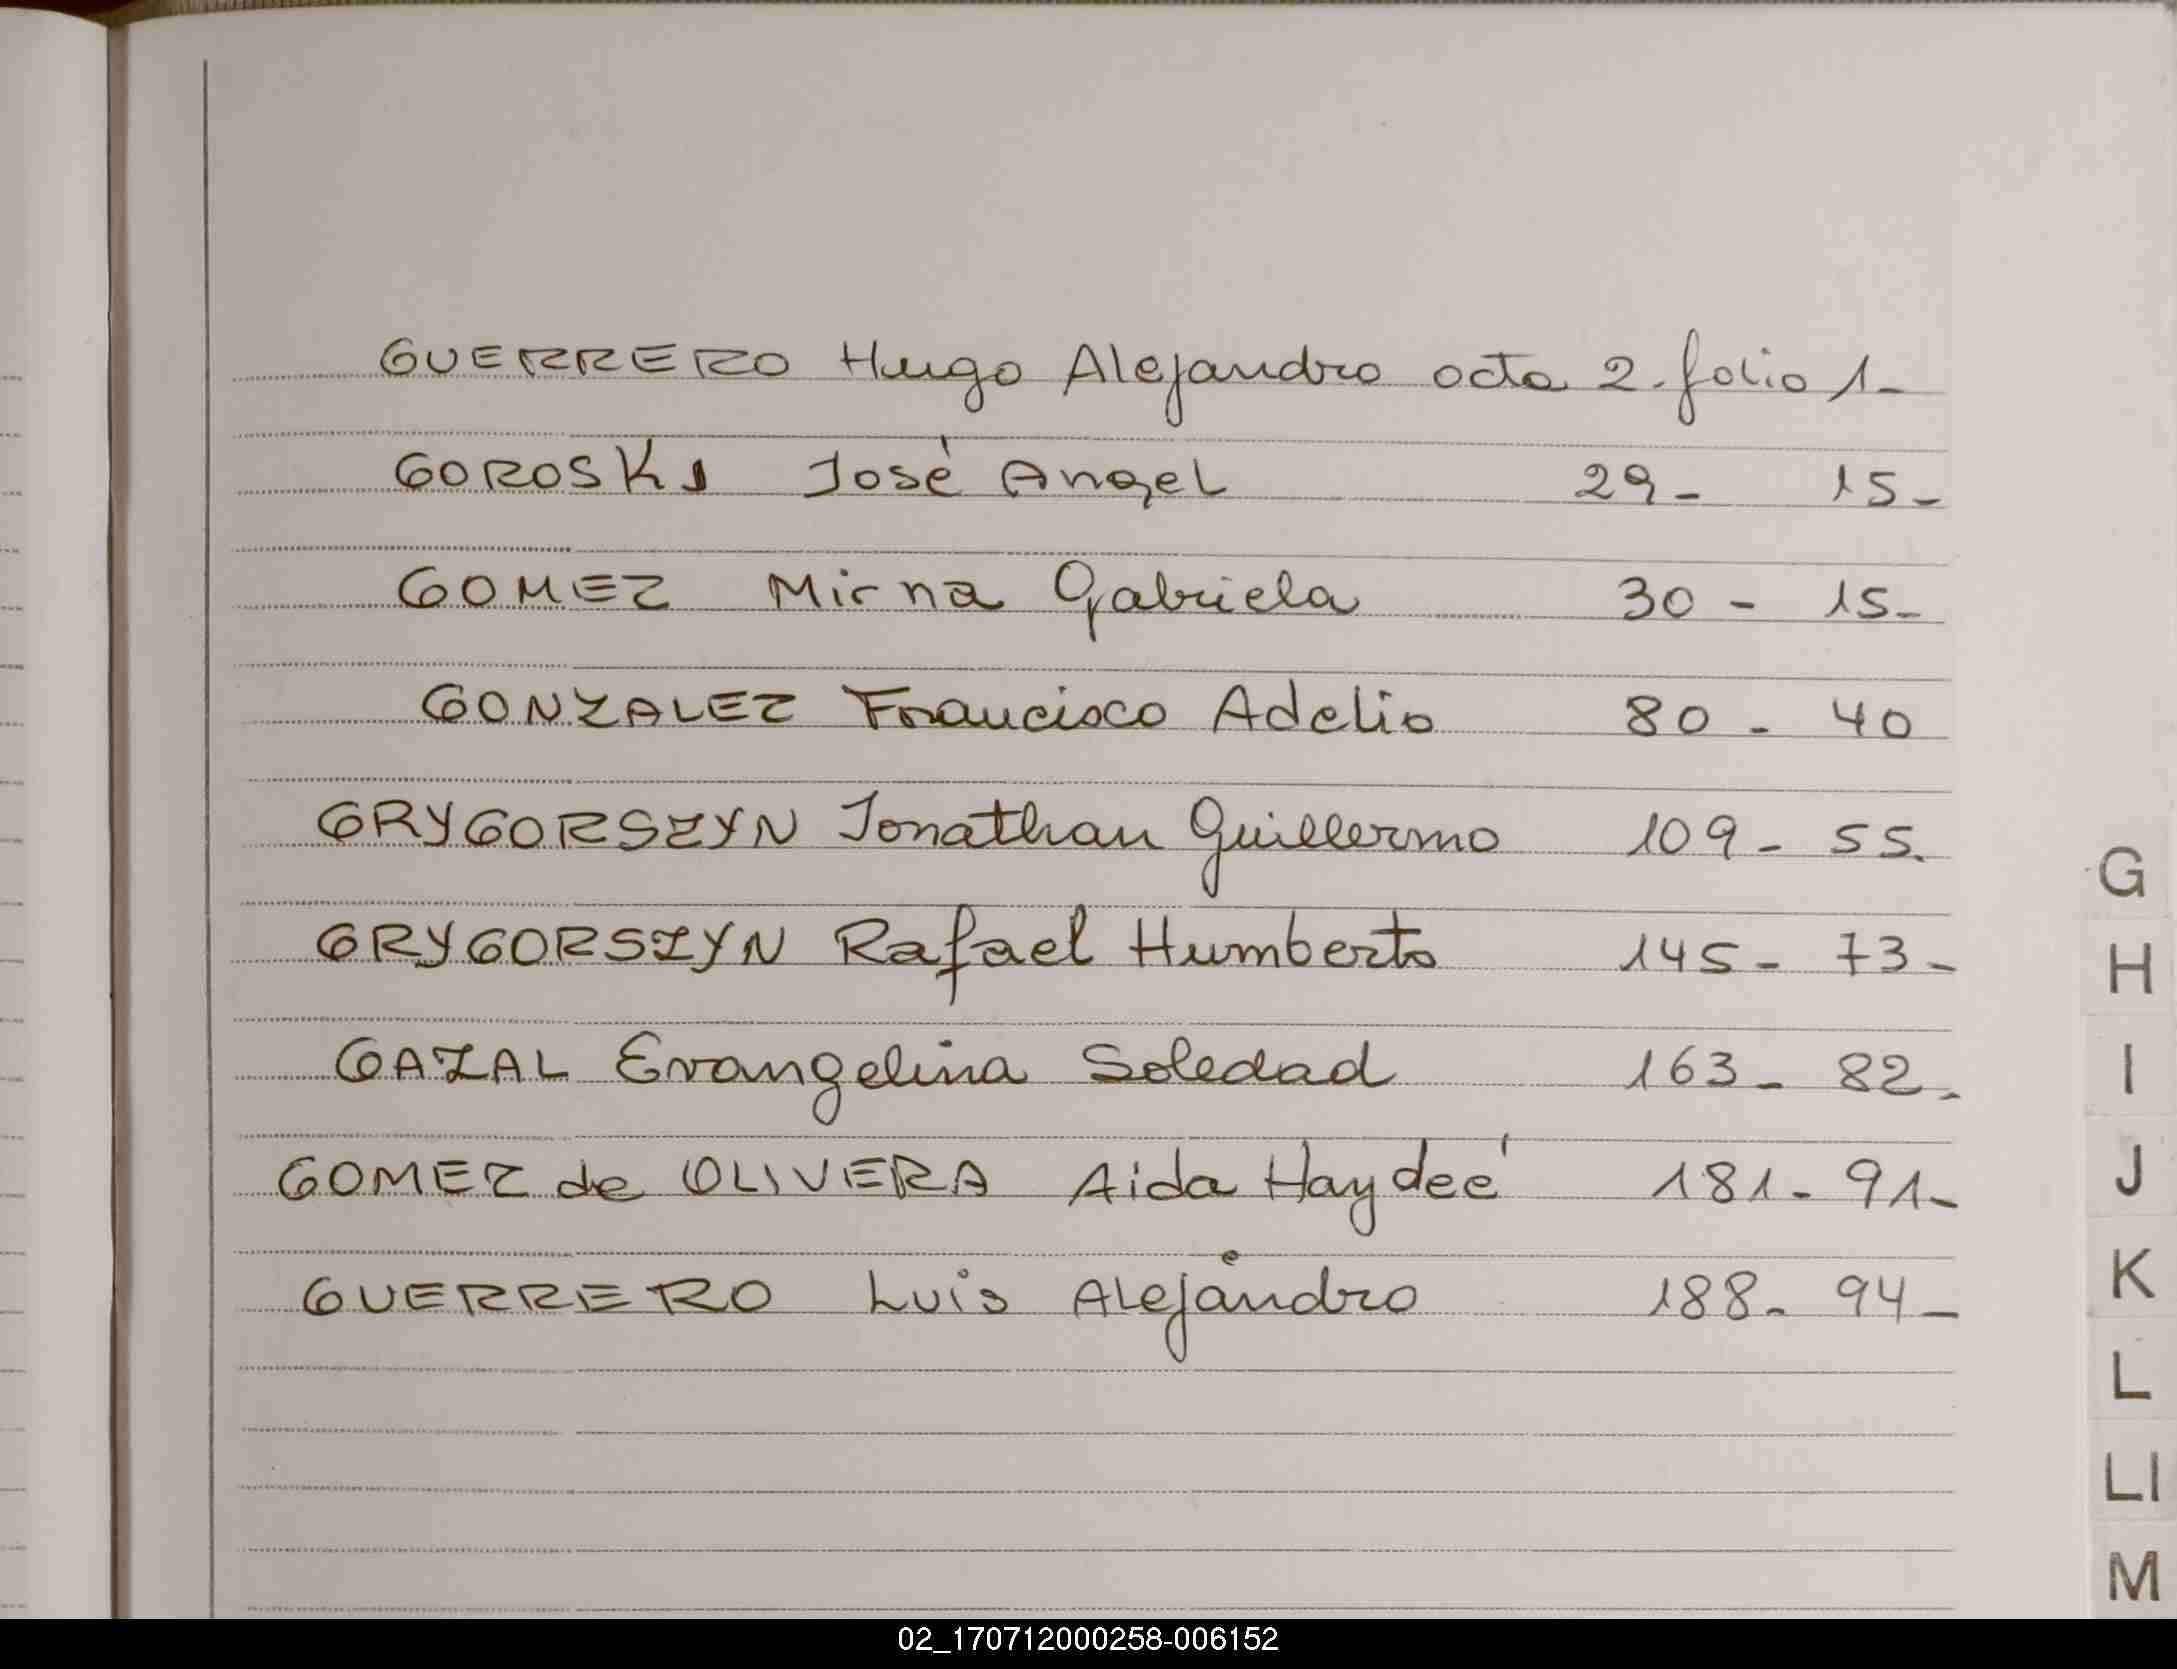 GUERRERO Hugo Alejandro acta 2. folio 1-
GOROSKI José Angel 29- 15-
GOMEZ Mirna Gabriela 30 - 15-
GONZALEZ Francisco Adelio 80 - 40
GRYGORSZYN Jonathan Guillermo 109 - 55.
GRYGORSZYN Rafael Humberto 145- 73-
GAZAL Evangelina Soledad 163- 82-
GOMEZ de OLIVERA Aida Haydeé 181- 91-
GUERRERO Luis Alejandro 188- 94-
G
H
I
J
K
L
Ll
M
02_170712000258-006152